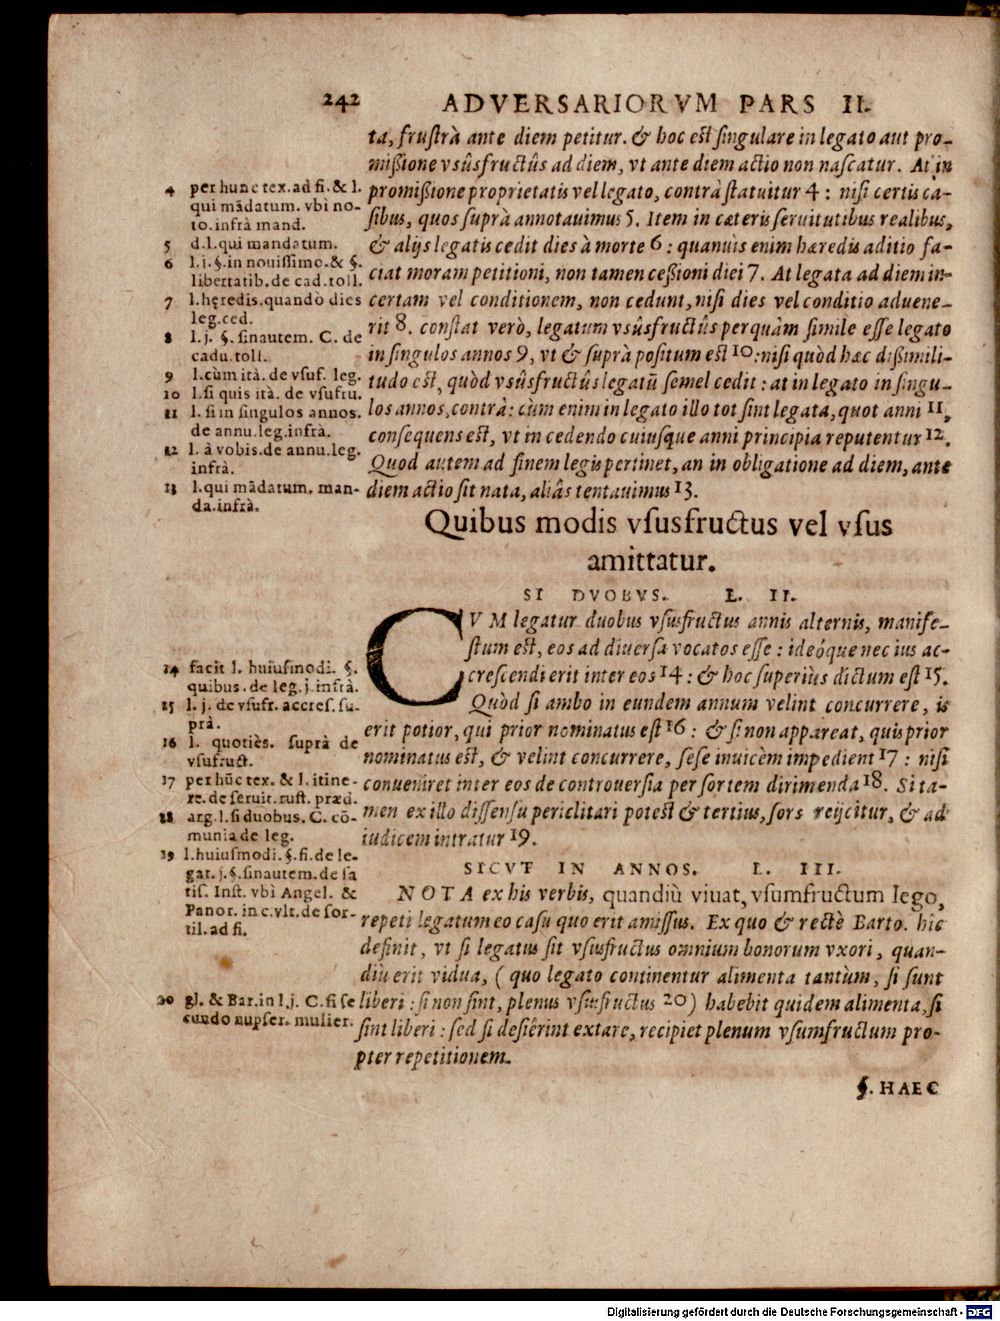 242 ADVERSARIORVM PARS II.
ta, fruſtrà ante diem petitur. & hoc eſt ſingulare in legato aut pro-
mißione vsûsfructûs ad diem, vt ante diem actio non naſcatur. At in
promißione proprietatis vel legato, contrà ſtatuitur 4 : niſi certis ca-
ſibus, quos ſuprà annotauimus 5. Item in cæteris ſeruitutibus realibus,
& alijs legatis cedit dies à morte 6 : quamuis enim hæredis aditio fa-
ciat moram petitioni, non tamen ceßioni diei 7. At legata ad diem in-
certam vel conditionem, non cedunt, niſi dies vel conditio aduene-
rit 8. conſtat verò, legatum vsûsfructûs perquàm ſimile eſſe legato
in ſingulos annos 9, vt & ſuprà poſitum eſt 10 : niſi quòd hæc dißimili-
tudo eſt, quòd vsûsfructûs legatū ſemel cedit : at in legato in ſingu-
los annos, contrà: cùm enim in legato illo tot ſint legata, quot anni 11,
conſequens eſt, vt in cedendo cuiuſque anni principia reputentur 12.
Quod autem ad finem legis pertinet, an in obligatione ad diem, ante
diem actio ſit nata, aliâs tentauimus 13.
4 per hunc tex. ad fi. & l.
qui mādatum. vbi no-
to. infrà mand.
5 d. l. qui mandatum.
6 l. j. §. in nouiſſimo. & §.
libertatib. de cad. toll.
7 l. hęredis. quando dies
leg. ced.
8 l. j. §. ſinautem. C. de
cadu. toll.
9 l. cùm ità. de vſuf. leg.
10 l. ſi quis ità. de vſufru.
11 l. ſi in ſingulos annos.
de annu. leg. infrà.
12 l. à vobis. de annu. leg.
infrà.
13 l. qui mādatum. man-
da. infrà.
Quibus modis vſusfructus vel vſus
amittatur.
SI DVOBVS. L. II.
CVM legatur duobus vſusfructus annis alternis, manife-
ſtum eſt, eos ad diuerſa vocatos eſſe : ideóque nec ius ac-
creſcendi erit inter eos 14 : & hoc ſuperiùs dictum eſt 15.
Quòd ſi ambo in eundem annum velint concurrere, is
erit potior, qui prior nominatus eſt 16 : & ſi non appareat, quis prior
nominatus eſt, & velint concurrere, ſeſe inuicèm impedient 17 : niſi
conueniret inter eos de controuerſia per ſortem dirimenda 18. Si ta-
men ex illo diſſenſu periclitari poteſt & tertius, ſors reijcitur, & ad
iudicem intratur 19.
14 facit l. huiuſmodi. §.
quibus. de leg. j. infrà.
15 l. j. de vſufr. accreſ. ſu-
prà.
16 l. quotiès. ſuprà de
vſufruct.
17 per hūc tex. & l. itine-
re. de ſeruit. ruſt. præd.
18 arg. l. ſi duobus. C. cō-
munia de leg.
19 l. huiuſmodi. §. fi. de le-
gat. j. §. ſinautem. de ſa
tiſ. Inſt. vbì Angel. &
Panor. in c. vlt. de ſor-
til. ad fi.
SICVT IN ANNOS. L. III.
NOTA ex his verbis, quandiù viuat, vſumfructum lego,
repeti legatum eo caſu quo erit amiſſus. Ex quo & rectè Barto. hîc
definit, vt ſi legatus ſit vſusfructus omnium bonorum vxori, quan-
diù erit vidua, ( quo legato continentur alimenta tantùm, ſi ſunt
liberi : ſi non ſint, plenus vſusfructus 20 ) habebit quidem alimenta, ſi
ſint liberi : ſed ſi deſiêrint extare, recipiet plenum vſumfructum pro-
pter repetitionem.
20 gl. & Bar. in l. j. C. ſi ſe
cundo nupſer. mulier.
§. HAEC
Digitalisierung gefördert durch die Deutsche Forschungsgemeinschaft - DFG